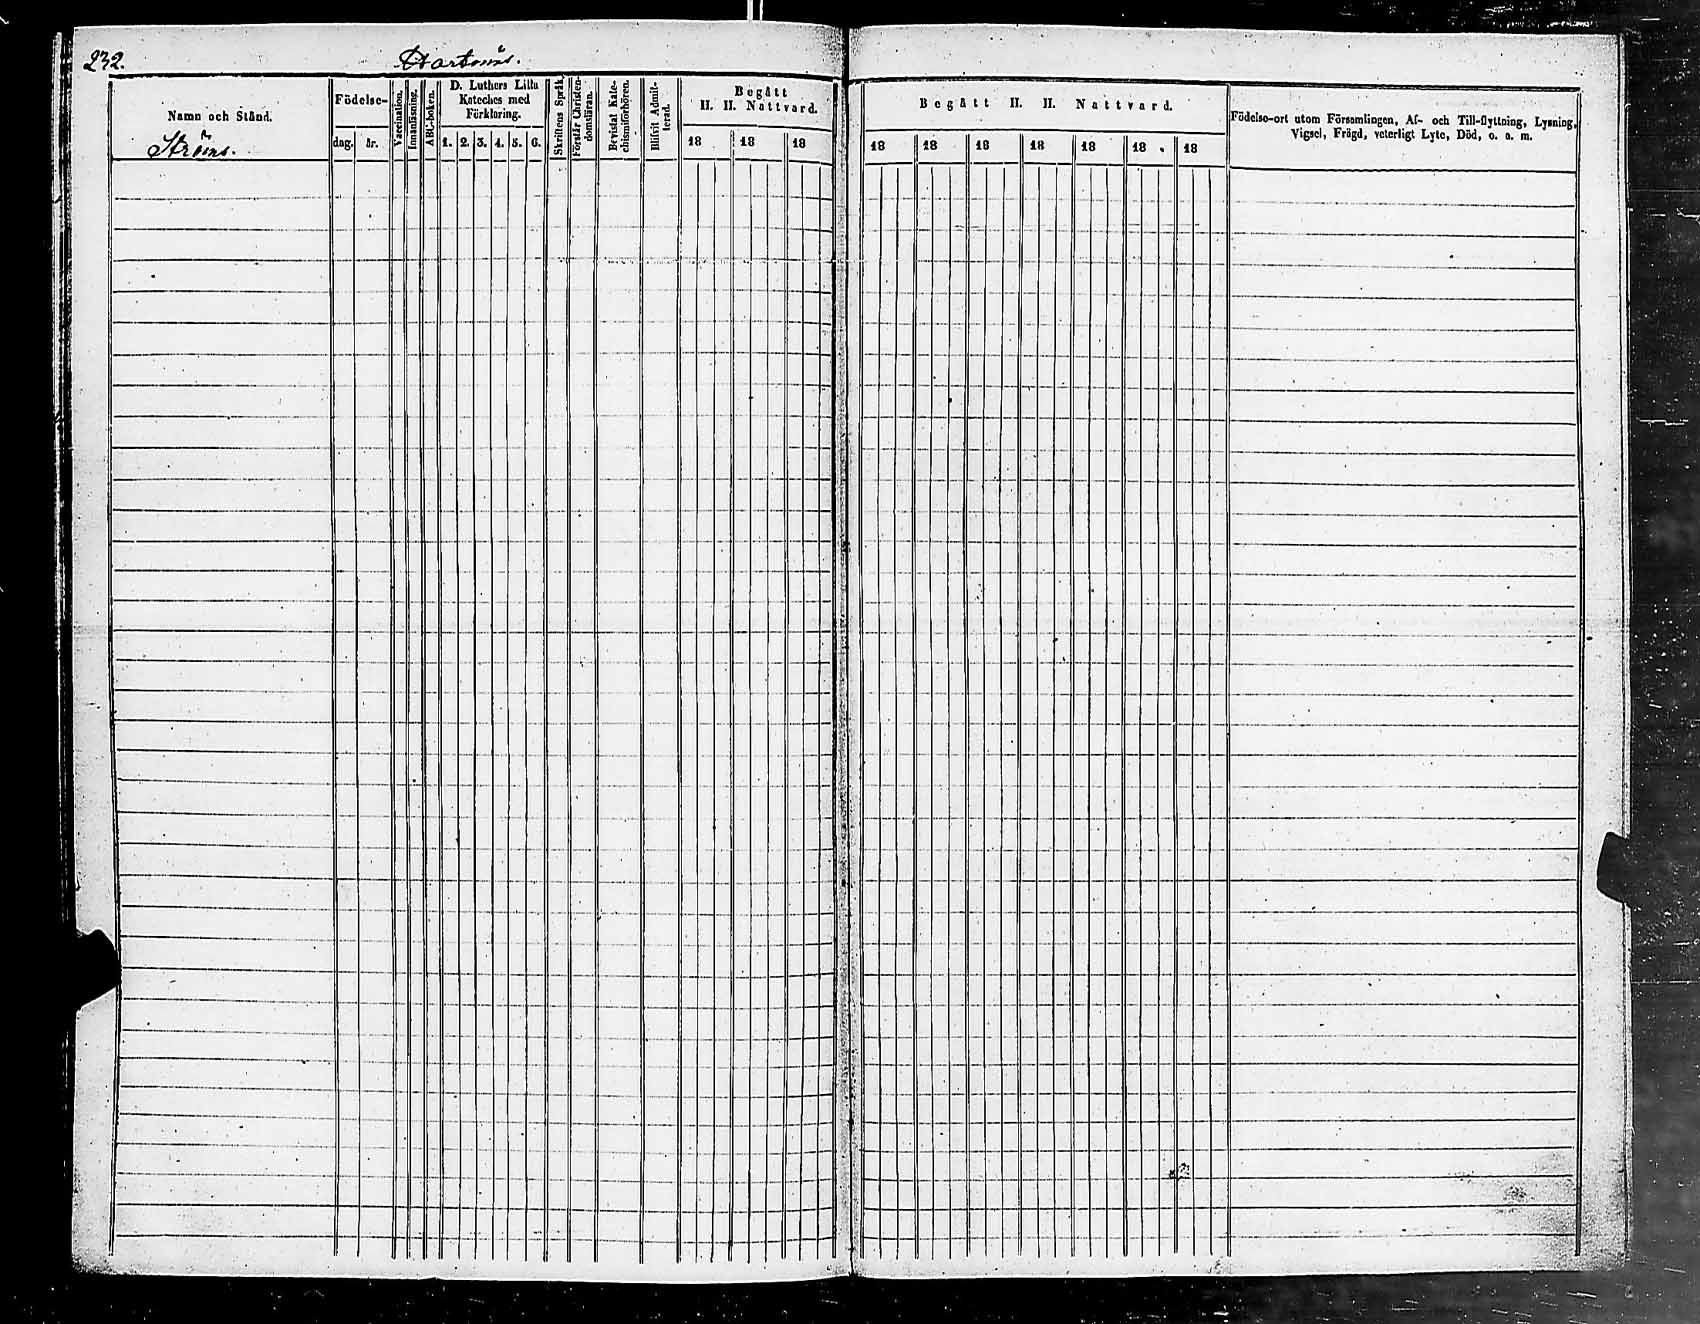 232.
Namn och Stånd.
Födelse-
dag. år.
Vaccination.
Innanläsning.
ABC-boken.
D. Luthers Lilla
Kateches med
Förklaring.
1. 2. 3. 4. 5. 6.
Skriftens Språk.
Förstår Christen-
domsläran.
Bevistat Kate-
chismiförhören.
Blifvit Admit-
terad.
Begått
H. H. Nattvard.
18 18 18
Begått H. H. Nattvard.
18 18 18 18 18 18 18
Födelse-ort utom Församlingen, Af- och Till-flyttning, Lysning,
Vigsel, Frägd, veterligt Lyte, Död, o. s. m.